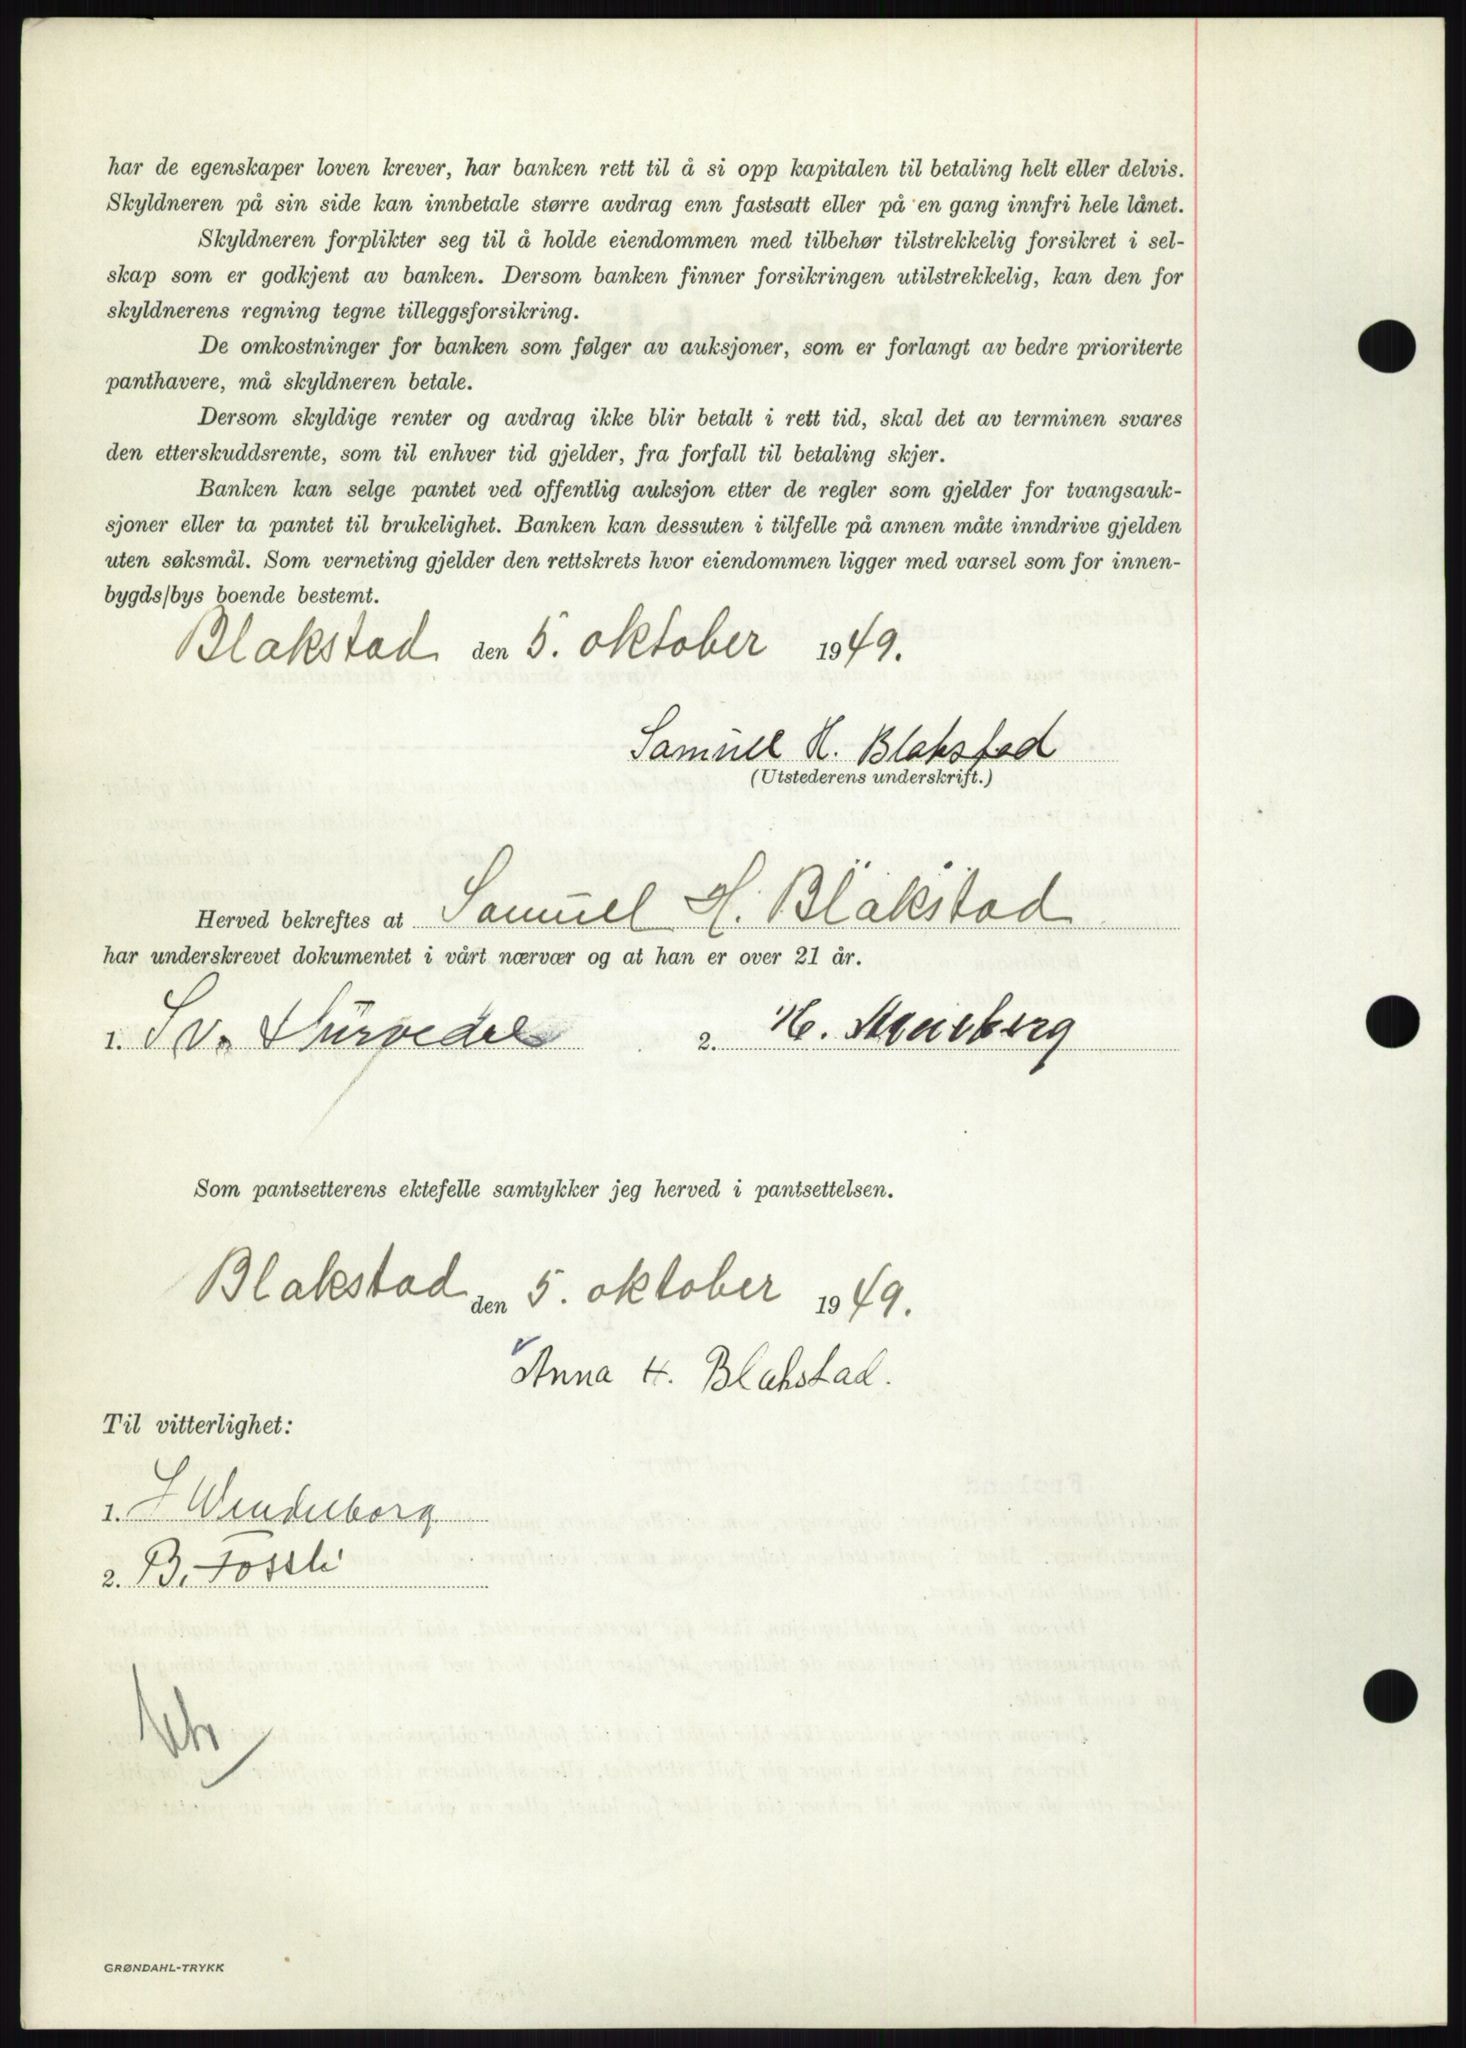 har de egenskaper loven krever, har banken rett til å si opp kapitalen til betaling helt eller delvis.
Skyldneren på sin side kan innbetale større avdrag enn fastsatt eller på en gang innfri hele lånet.
Skyldneren forplikter seg til å holde eiendommen med tilbehør tilstrekkelig forsikret i sel-
skap som er godkjent av banken. Dersom banken finner forsikringen utilstrekkelig, kan den for
skyldnerens regning tegne tilleggsforsikring.
De omkostninger for banken som følger av auksjoner, som er forlangt av bedre prioriterte
panthavere, må skyldneren betale.
Dersom skyldige renter og avdrag ikke blir betalt i rett tid, skal det av terminen svares
den etterskuddsrente, som til enhver tid gjelder, fra forfall til betaling skjer.
Banken kan selge pantet ved offentlig auksjon etter de regler som gjelder for tvangsauk-
sjoner eller ta pantet til brukelighet. Banken kan dessuten i tilfelle på annen måte inndrive gjelden
uten søksmål. Som verneting gjelder den rettskrets hvor eiendommen ligger med varsel som for innen-
bygds/bys boende bestemt.
Blakstad den 5. oktober 1949.
Samuel H. Blakstad
(Utstederens underskrift.)
Herved bekreftes at Samuel H. Blakstad
har underskrevet dokumentet i vårt nærvær og at han er over 21 år.
1. Sv. 2. H.
Som pantsetterens ektefelle samtykker jeg herved i pantsettelsen.
Blakstad den 5. oktober 1949.
Anna H. Blakstad.
Til vitterlighet:
1. Wendelborg
2. B. Fossli
GRØNDAHL-TRYKK